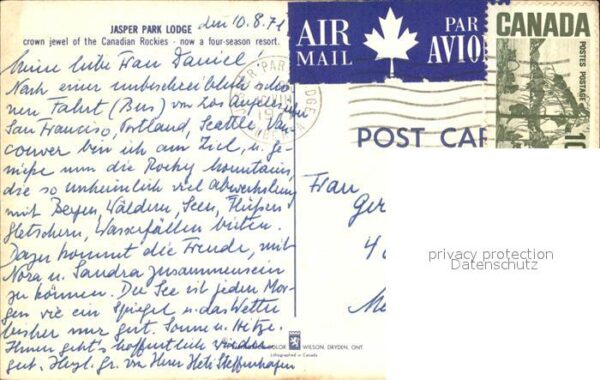 JASPER PARK LODGE
crown jewel of the Canadian Rockies - now a four-season resort.
den 10.8.71
Meine liebe Frau Daniel.
Nach einer unbeschreiblich schö-
nen Fahrt (Bus) von Los Angeles über
San Francisco, Portland, Seattle, Van-
couver bin ich am Ziel, u. ge-
nieße nun die Rocky Mountains,
die so unheimlich viel Abwechslung
mit Bergen, Wäldern, Seen, Flüßen
Gletschern, Wasserfällen bieten.
Dazu kommt die Freude, mit
Nora u. Sandra zusammensein
zu können. Der See ist jeden Mor-
gen wie ein Spiegel u. das Wetter
bisher nur gut. Sonne u. Hitze.
Ihnen geht's hoffentlich wieder
gut. Herzl. Gr. von Ihrer Hete Steffenhagen
AIR
MAIL
PAR
AVIO
CANADA
POSTES POSTAGE
10
POST CAR
Frau
Ger
40
privacy protection
Datenschutz
COLOR
WILSON, DRYDEN, ONT.
Lithographed in Canada